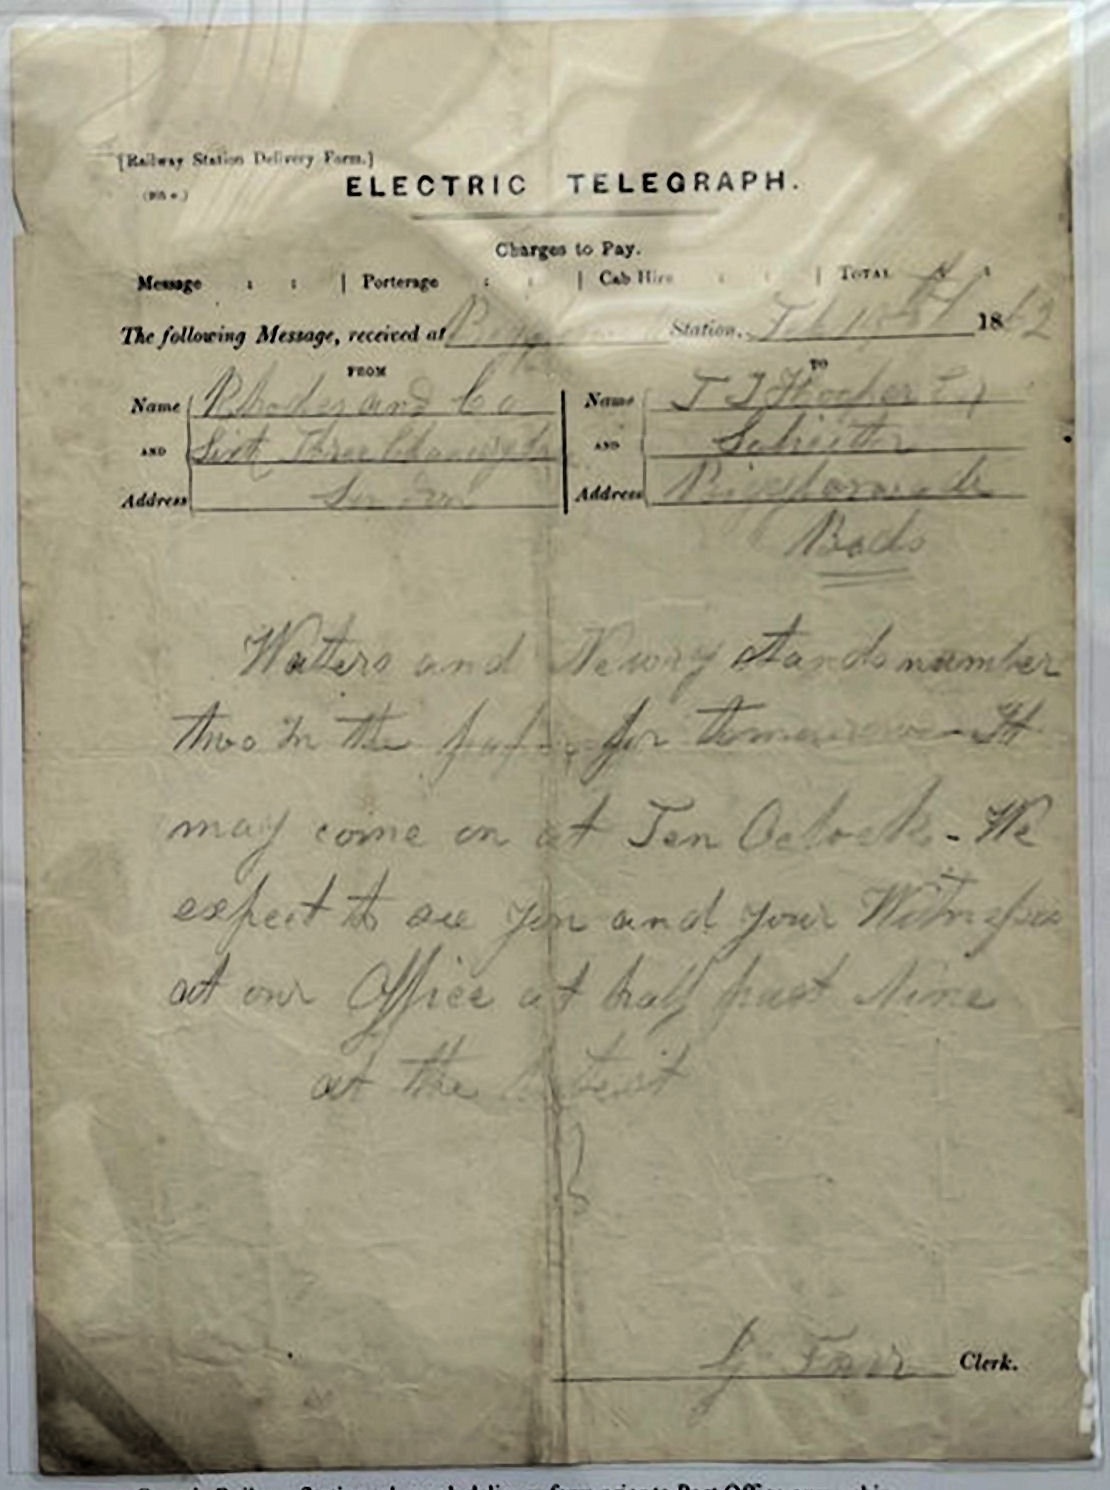 [Railway Station Delivery Form.]
ELECTRIC TELEGRAPH.
Charges to Pay.
Message : : | Porterage : : | Cab Hire : : | TOTAL
The following Message, received at Station, Feb 18 62
FROM TO
Name Rhodes and Co Name T J Hooper
AND Sixty Three Chancery Ln AND Solicitor
Address London Address Biggleswade
Beds
Watters and Newry stands number
two in the paper for tomorrow - It
may come on at Ten Oclock - We
expect to see you and your Witnesses
at our Office at half past Nine
at the latest
Farr Clerk.